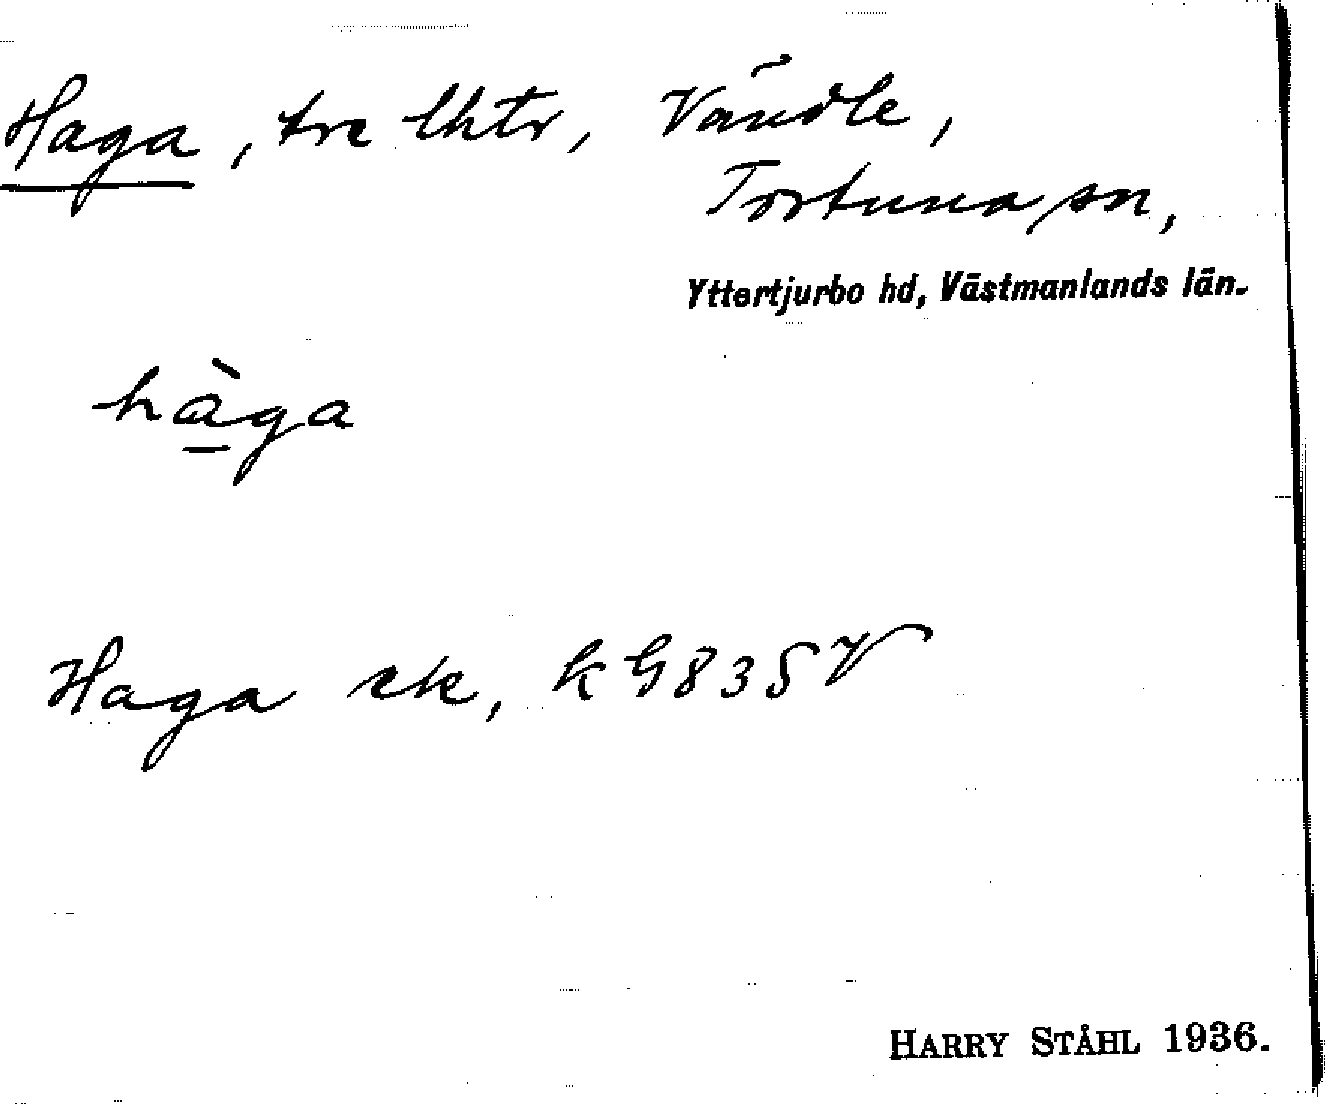 Haga, tre lhtr, Vändle,
Tortuna sn,
Yttertjurbo hd, Västmanlands län.
hàga
Haga ek, k G 83 S V
HARRY STÅHL 1936.